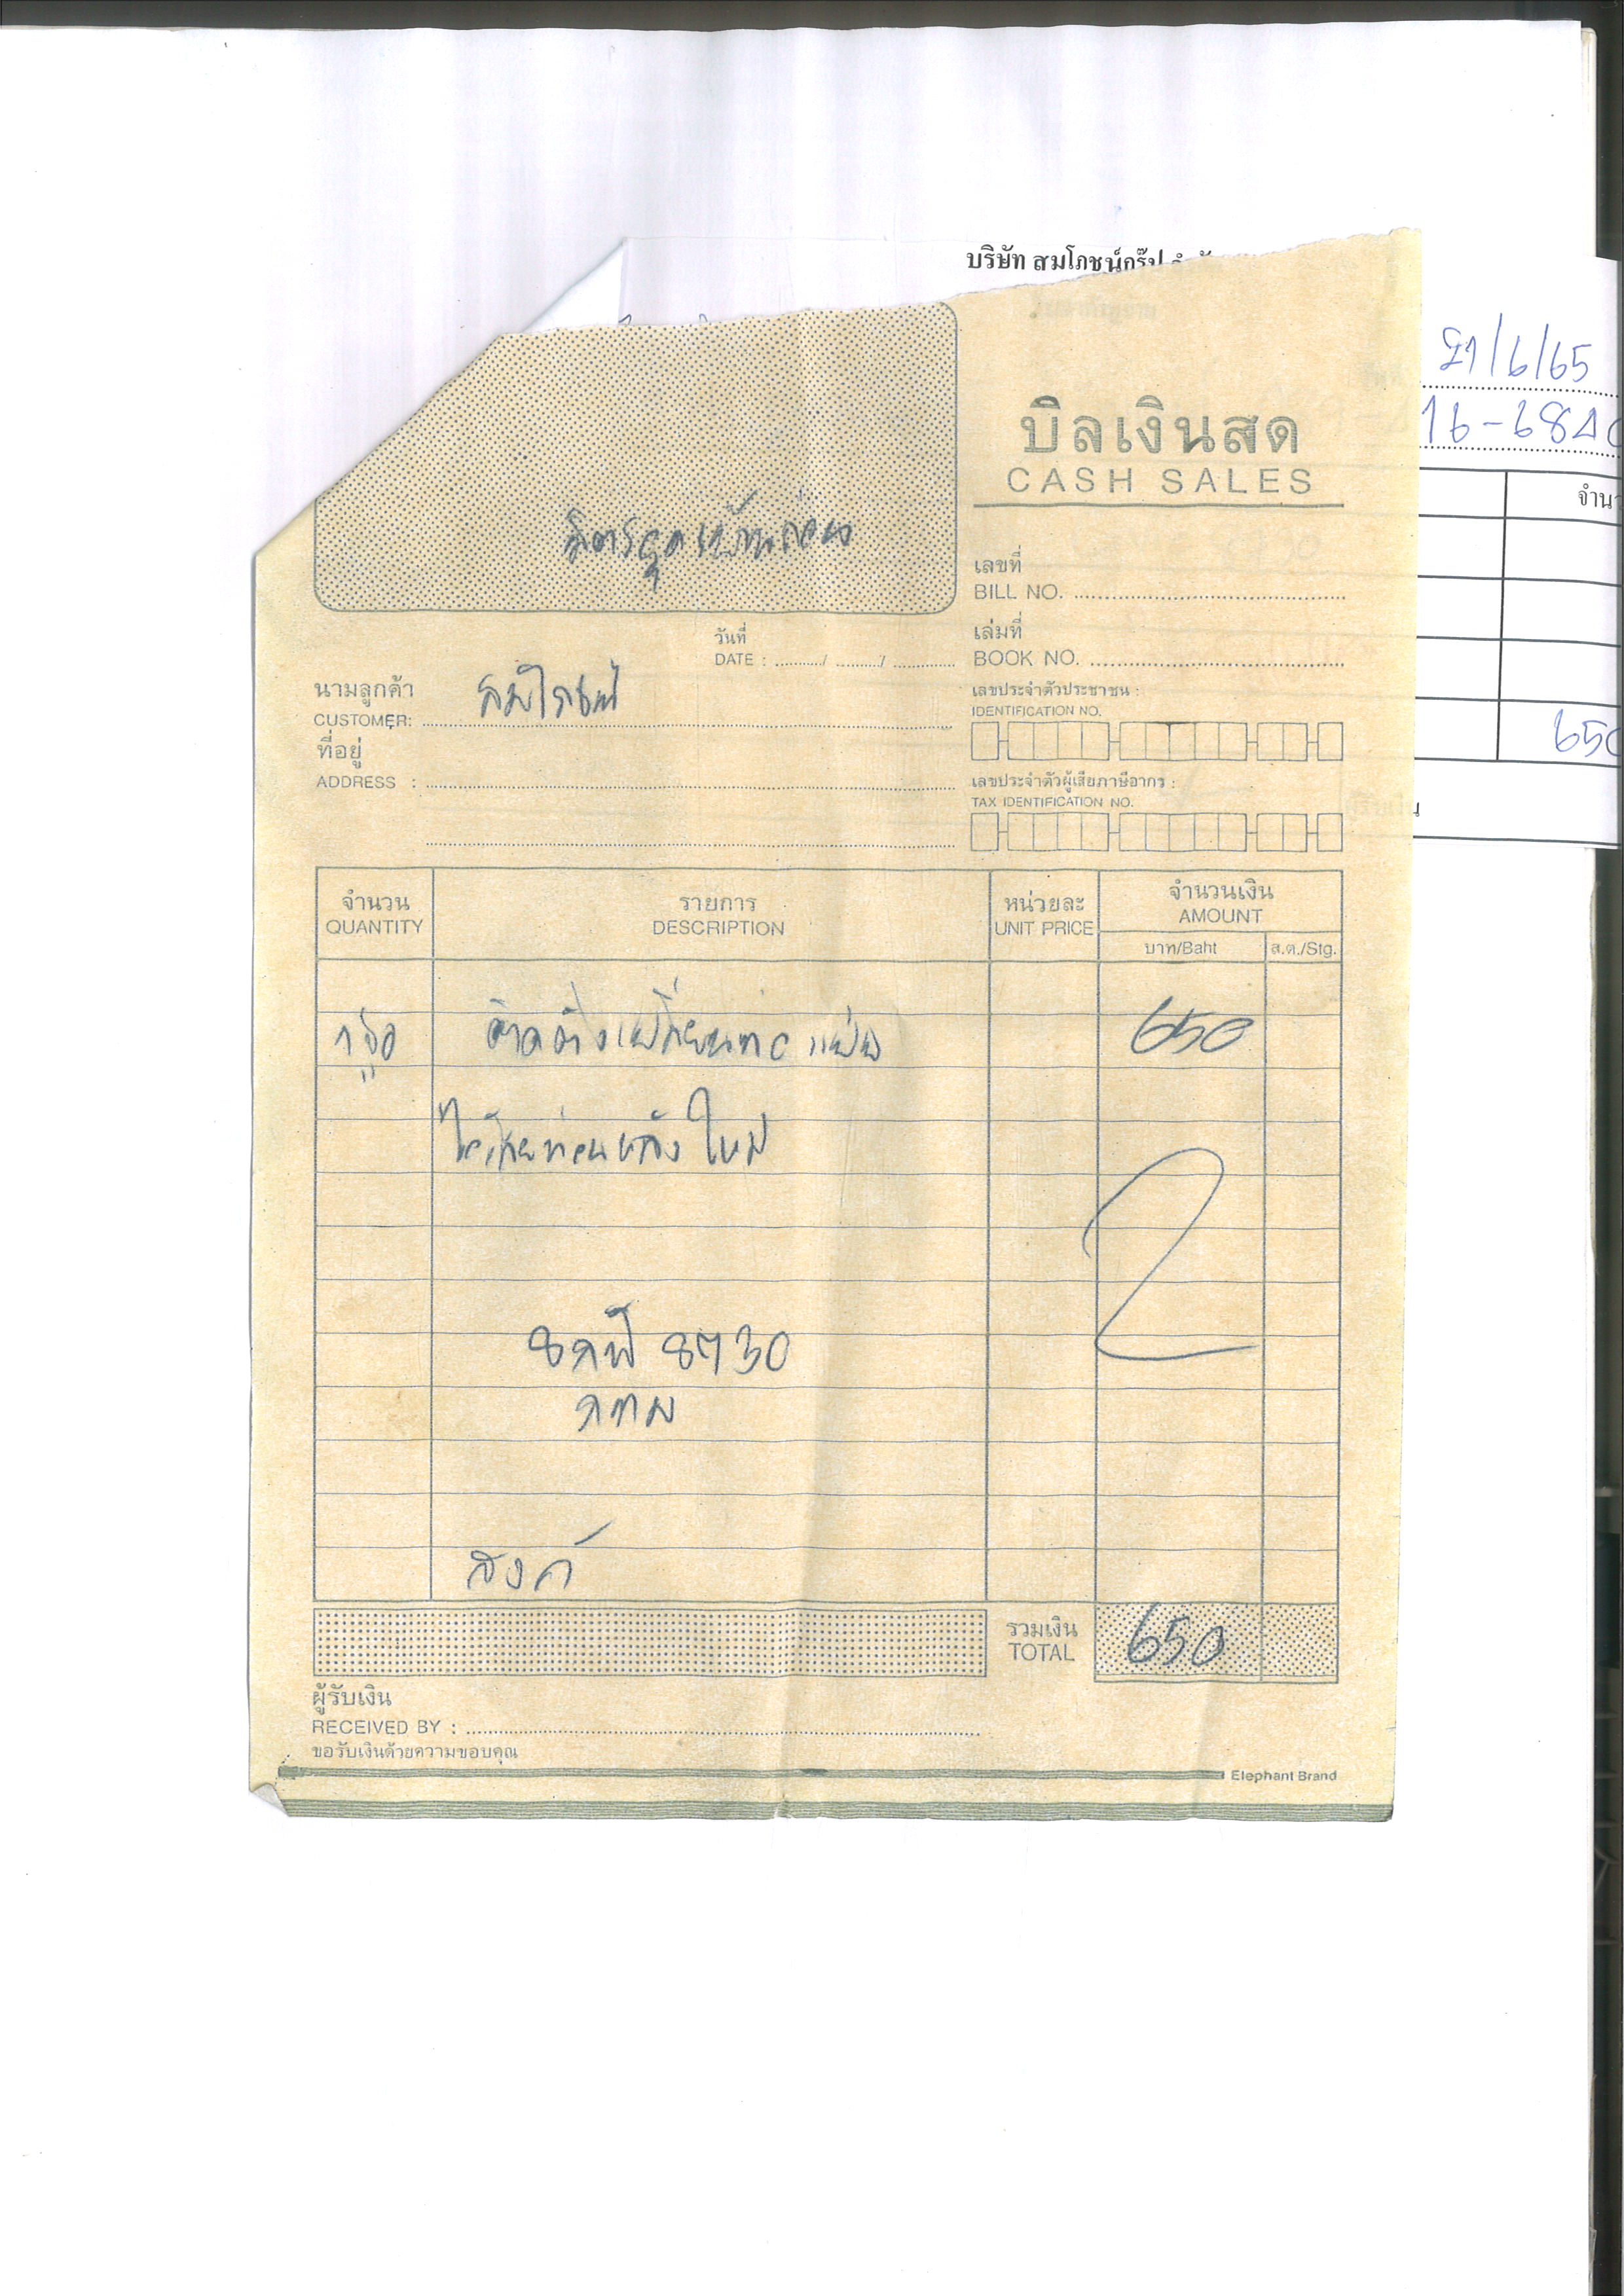 บริษัท สมโภชน์กรุ๊ป
21/6/65
16-684
บิลเงินสด
CASH SALES
เลขที่
BILL NO.
วันที่
DATE : ........./ ........./ .............
เล่มที่
BOOK NO.
นามลูกค้า
CUSTOMER: สมโภชน์
เลขประจำตัวประชาชน :
IDENTIFICATION NO.
ที่อยู่
ADDRESS :
เลขประจำตัวผู้เสียภาษีอากร :
TAX IDENTIFICATION NO.
650
จำนวน
QUANTITY
รายการ
DESCRIPTION
หน่วยละ
UNIT PRICE
จำนวนเงิน
AMOUNT
บาท/Baht
ส.ต./Stg.
650
ใหม่
8730
กทม
สงค์
รวมเงิน
TOTAL
650
ผู้รับเงิน
RECEIVED BY :
ขอรับเงินด้วยความขอบคุณ
Elephant Brand